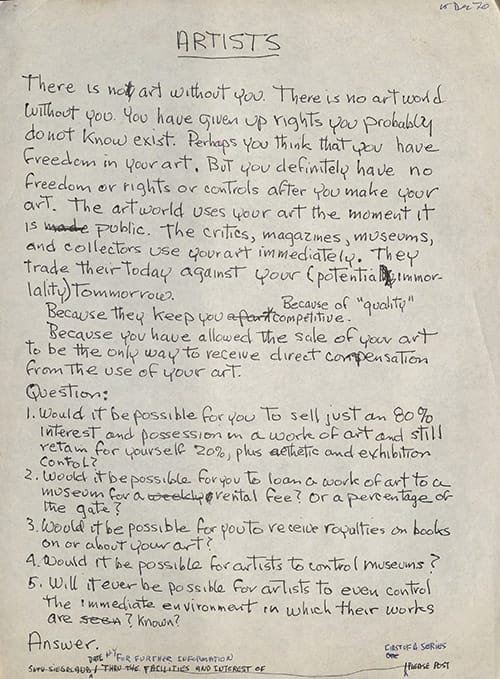 15 Dec 70
ARTISTS
There is not art without you. There is no art world
without you. You have given up rights you probably
do not know exist. Perhaps you think that you have
freedom in your art. But you definitely have no
freedom or rights or controls after you make your
art. The artworld uses your art the moment it
is made public. The critics, magazines, museums,
and collectors use your art immediately. They
trade their today against your (potential immor-
lality) Tommorrow.
Because of "quality"
Because they keep you apart competitive.
Because you have allowed the sale of your art
to be the only way to receive direct compensation
from the use of your art.
Question:
1. Would it be possible for you to sell just an 80%
interest and possession in a work of art and still
retain for yourself 20%, plus aethetic and exhibition
contol?
2. Would it be possible for you to loan a work of art to a
museum for a weekly rental fee? Or a percentage of
the gate?
3. Would it be possible for you to receive royalties on books
on or about your art?
4. Would it be possible for artists to control museums?
5. Will it ever be possible for artists to even control
the immediate environment in which their works
are seen? Known?
Answer.
FIRST OF A SERIES
DATE
FOR FURTHER INFORMATION
SETH SIEGELAUB / THRU THE FACILITIES AND INTEREST OF
/ PLEASE POST